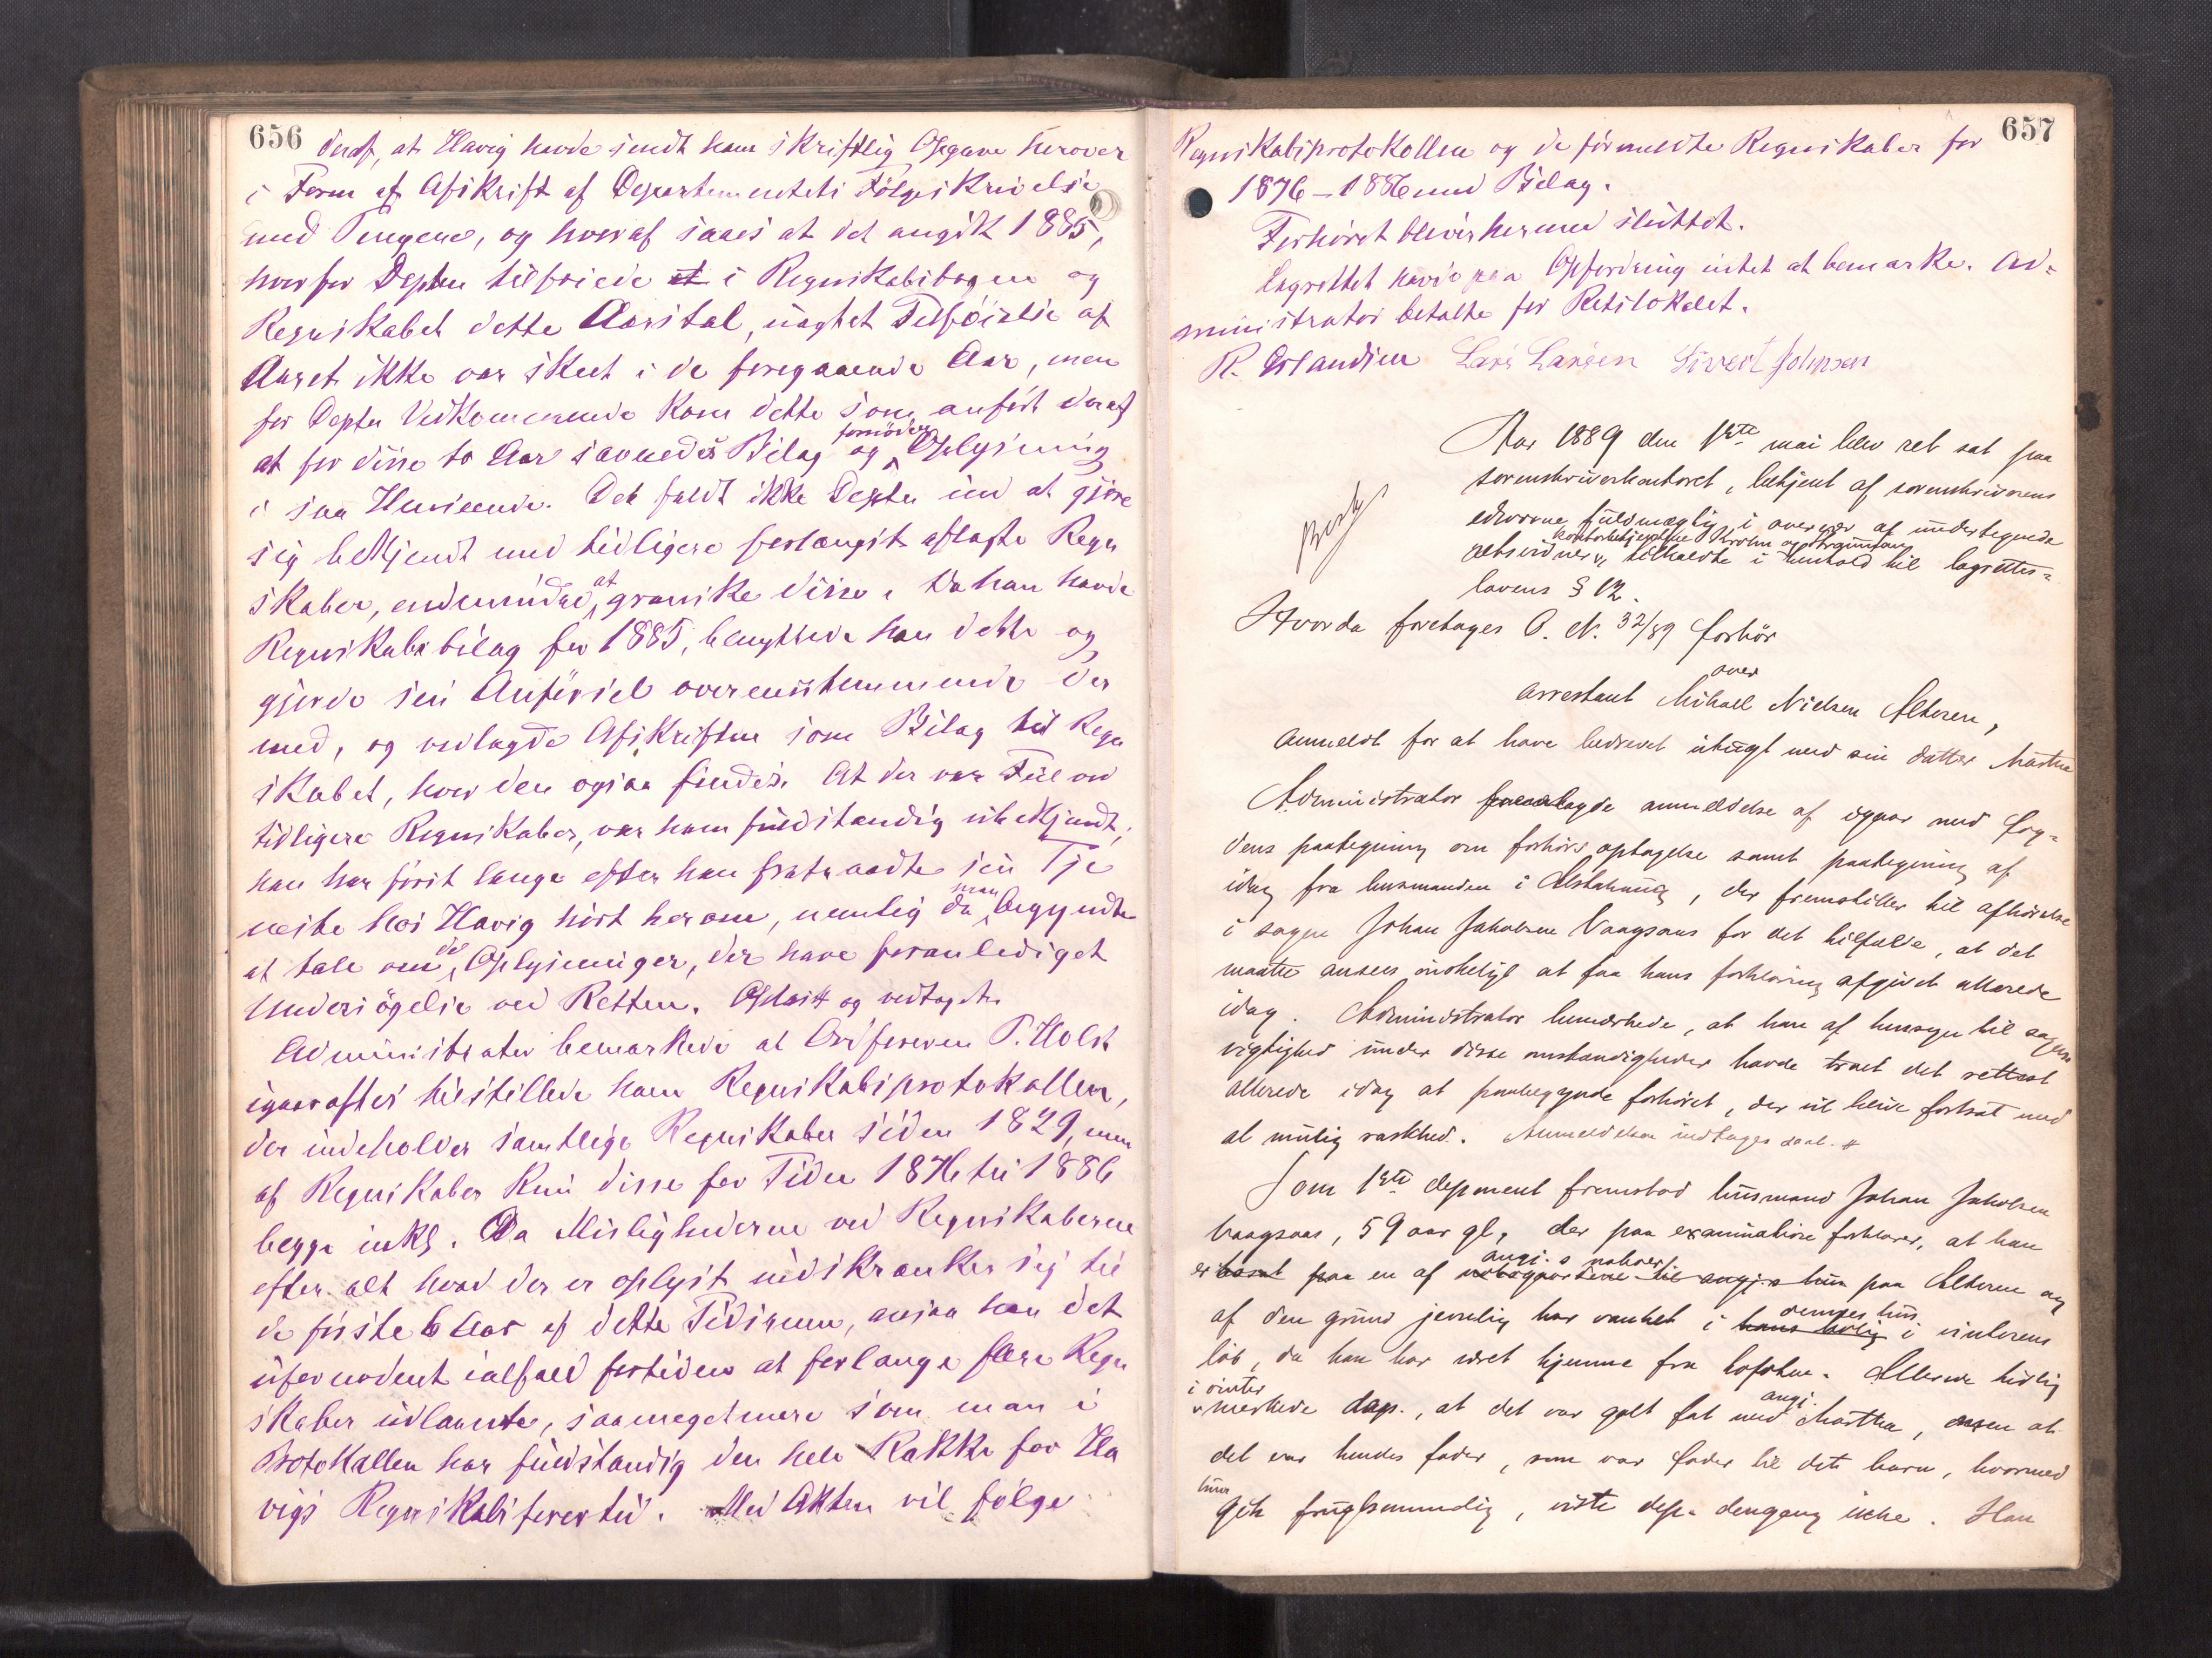 656
deraf, at Havig havde sendt ham skriftlig Opgave herover
i Form af Afskrift af Departementets Følgeskrivelse
med Pengene, og hvoraf saaes at det angik 1885,
hvorfor Depten tilføiede i Regnskabsbogen og
Regnskabet dette Aarstal, uagtet Tilføielse af
Aaret ikke var skeet i de foregaaende Aar, men
for Depten Vedkommende kom dette som anført deraf
at for disse to Aar savnedes Bilag og fornøden Oplysning
i saa Henseende. Det faldt ikke Depten ind at gjøre
sig bekjendt med tidligere forlængst aflagte Regn
skaber, endmindre at granske disse. Da han havde
Regnskabsbilag for 1885, benyttede han dette og
gjorde sin Anførsel overensstemmende der
med, og vedlagde Afskriften som Bilag til Regn
skabet, hvor den ogsaa findes. At der var Feil ved
tidligere Regnskaber, var ham fuldstændig ubekjendt,
han har først længe efter han fratraadte sin Tje
neste hos Havig hørt herom, nemlig da man begyndte
at tale om de Oplysninger, der have foranlediget
Undersøgelse ved Retten. Oplæst og vedtaget.
Administrator bemærkede at Ordføreren P. Holst
igaaraftes tilstillede ham Regnskabsprotokollen,
der indeholder samtlige Regnskaber siden 1829, men
af Regnskaber kun disse for Tiden 1876 til 1886
begge inkl. Da Misligheterne ved Regnskaberne
efter alt hvad der er oplyst indskrænker sig til
de første 6 Aar af dette Tidsrum, ansaa han det
ufornødent ialfald fortiden at forlange flere Regn
skaber udlaante, saameget mere som man i
Protokollen har fuldstændig den hele Række for Ha
vigs Regnskabsførertid. Med Akten vil følge
657
Regnskabsprotokollen og de førnævnte Regnskaber for
1876-1886 med Bilag.
Forhøret blev hermed sluttet.
Lagrettet havde paa Opfordring intet at bemærke. Ad-
ministrator betalte for Retslokalet.
R. Erlandsen Lars Larsen Sivert Johnsen
Aar 1889 den 1ste mai blev ret sat paa
sorenskriverkontoret, betjent af sorenskriverens
edsvorne fuldmægtig i overvær af undertegnede
kontorbetjentene Krohn og
retsvidner, tilkaldte i henhold til lagrettes-
lovens § 12.
Hvorda foretoges O. N. 32/89 forhør
over
arrestant Mikael Nielsen Alteren,
anmeldt for at have bedrevet utugt med sin datter Martha
Administrator fremlagde anmeldelse af igaar med fog-
dens paategning om forhørs optagelse samt paategning af
idag fra lensmanden i Alstahaug, der fremstiller til afhørelse
i sagen Johan Jakobsen Vaagsaas for det tilfælde, at det
maatte ansees ønskeligt at faa hans forklaring afgivet allerede
idag. Administrator bemærkede, at han af hensyn til sagens
vigtighed under disse omstændigheder havde troet det rettest
allerede idag at paabegynde forhøret, der vil blive fortsat med
al mulig raskhed. Anmeldelsen indtages saal. #
Som 1ste deponent fremstod husmand Johan Jakobsen
Vaagsaas, 59 aar gl., der paa examination forklarer, at han
er angj.s naboer paa en af nabogaardene til angj.s hus paa Alteren og
af den grund jevnlig har vanket i hans bolig dennes hus i vinterens
løb, da han har været hjemme fra Lofoten. Allerede tidlig
i vinter
mærkede dep., at det var galt fat med angj. Martha, men at
det var hendes fader, som var fader til det barn, hvormed
hun
gik frugtsommelig, vidste dep. dengang ikke. Han